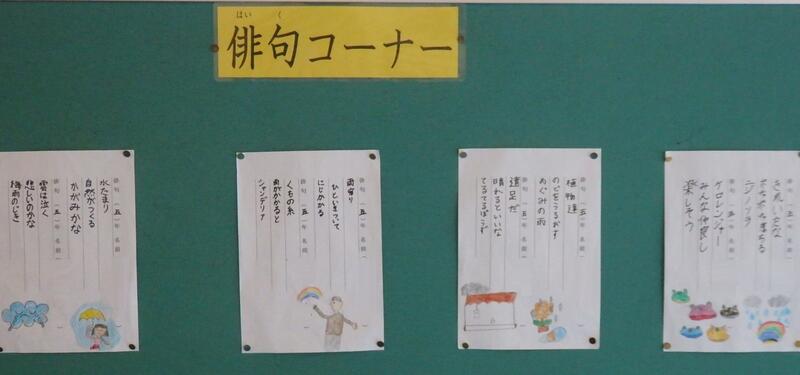 はいく
俳句コーナー
俳句(五)年 名前(
水たまり
自然がつくる
かがみかな
俳句(五)年 名前(
雲は泣く
悲しいのかな
梅雨のじき
俳句(五)年 名前(
雨宿り
ひといきついて
にじかかる
俳句(五)年 名前(
くもの糸
雨がかかると
シャンデリア
俳句(五)年 名前(
植物達
のどをうるおす
めぐみの雨
俳句(五)年 名前(
遠足だ
晴れるといいな
てるてるぼうず
俳句(五)年 名前(
きれいだな
俳句(五)年 名前(
ケロレンジャー
みんな仲良し
楽しそう